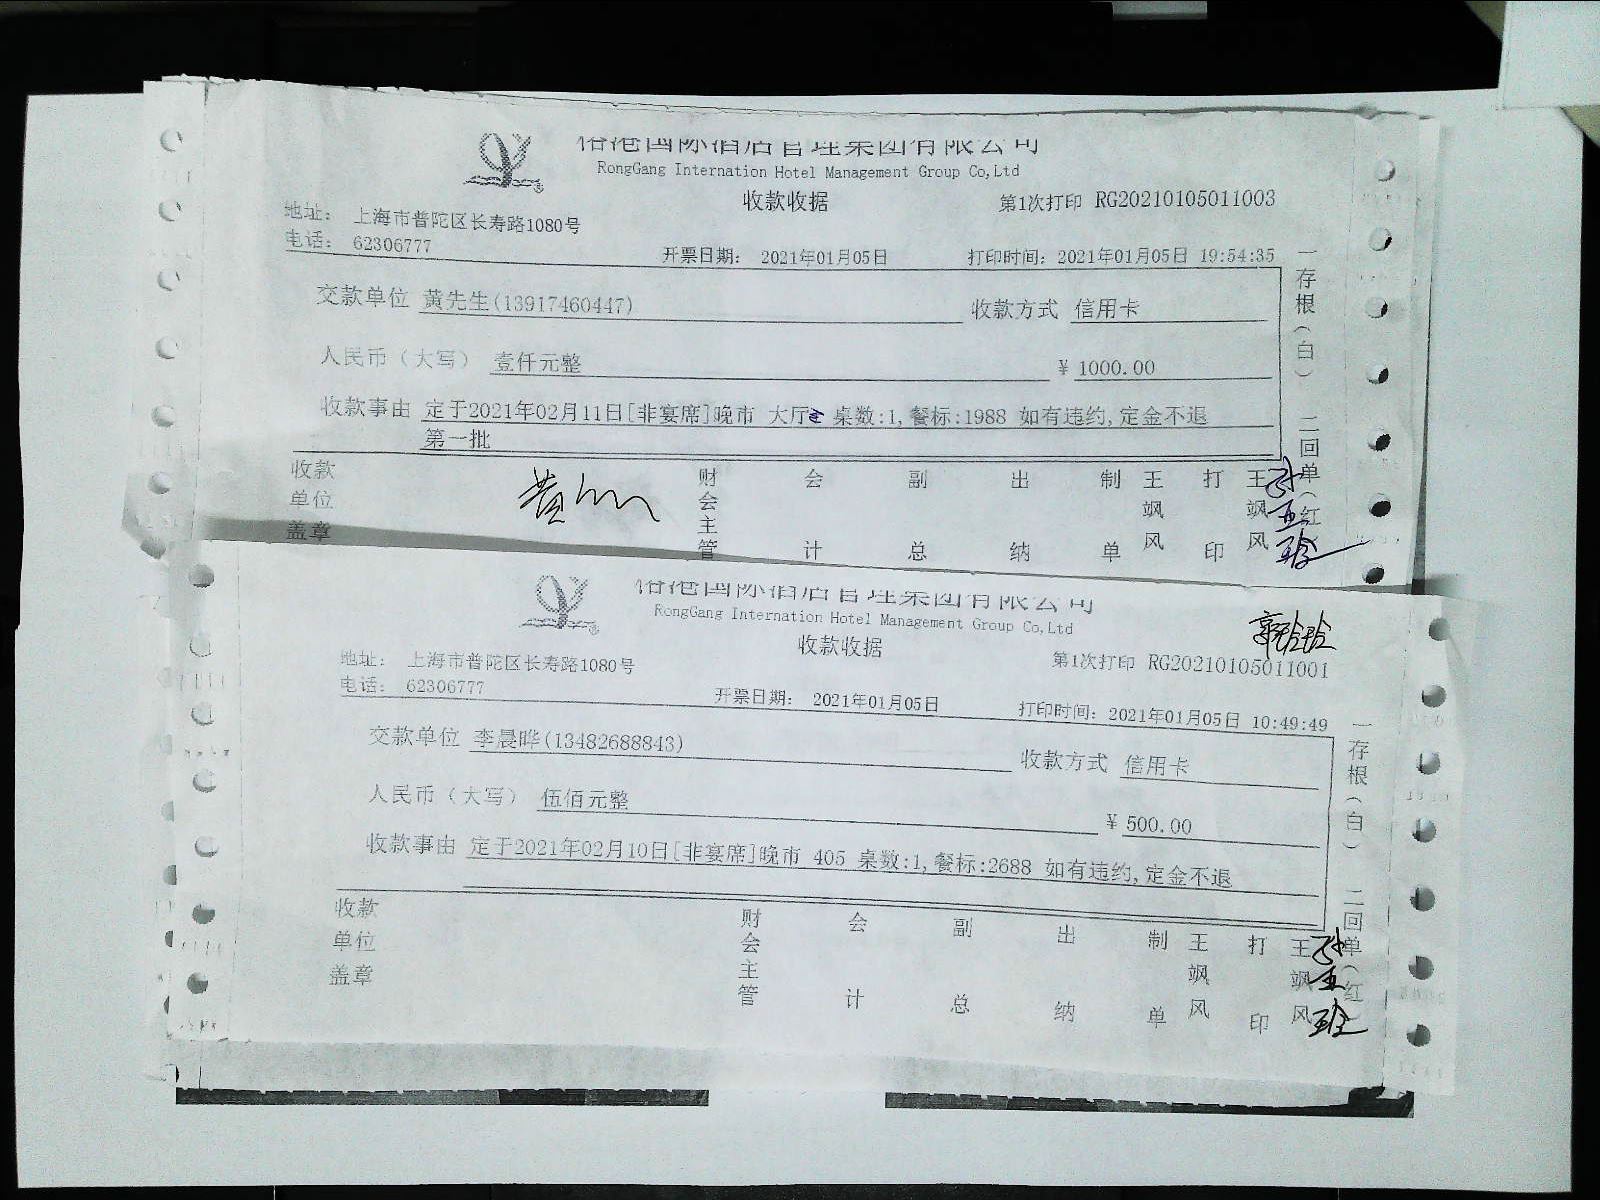 国际酒店管理集团有限公司
RongGang Internation Hotel Management Group Co,Ltd
收款收据
第1次打印 RG20210105011003
地址： 上海市普陀区长寿路1080号
电话： 62306777
开票日期： 2021年01月05日
打印时间：2021年01月05日 19:54:35
交款单位 黄先生(13917460447)
收款方式 信用卡
人民币（大写） 壹仟元整
¥ 1000.00
收款事由 定于2021年02月11日[非宴席]晚市 大厅 桌数:1,餐标:1988 如有违约,定金不退
第一批
收款单位盖章
黄
财会主管
会计
副总
出纳
制单
王飒风
打印
王飒风
一存根(白) 二回单(红
国际酒店管理集团有限公司
RongGang Internation Hotel Management Group Co,Ltd
收款收据
第1次打印 RG20210105011001
地址： 上海市普陀区长寿路1080号
电话： 62306777
开票日期： 2021年01月05日
打印时间：2021年01月05日 10:49:49
交款单位 李晨晔(13482688843)
收款方式 信用卡
人民币（大写） 伍佰元整
¥ 500.00
收款事由 定于2021年02月10日[非宴席]晚市 405 桌数:1,餐标:2688 如有违约,定金不退
收款单位盖章
财会主管
会计
副总
出纳
制单
王飒风
打印
王飒风
一存根(白) 二回单(红